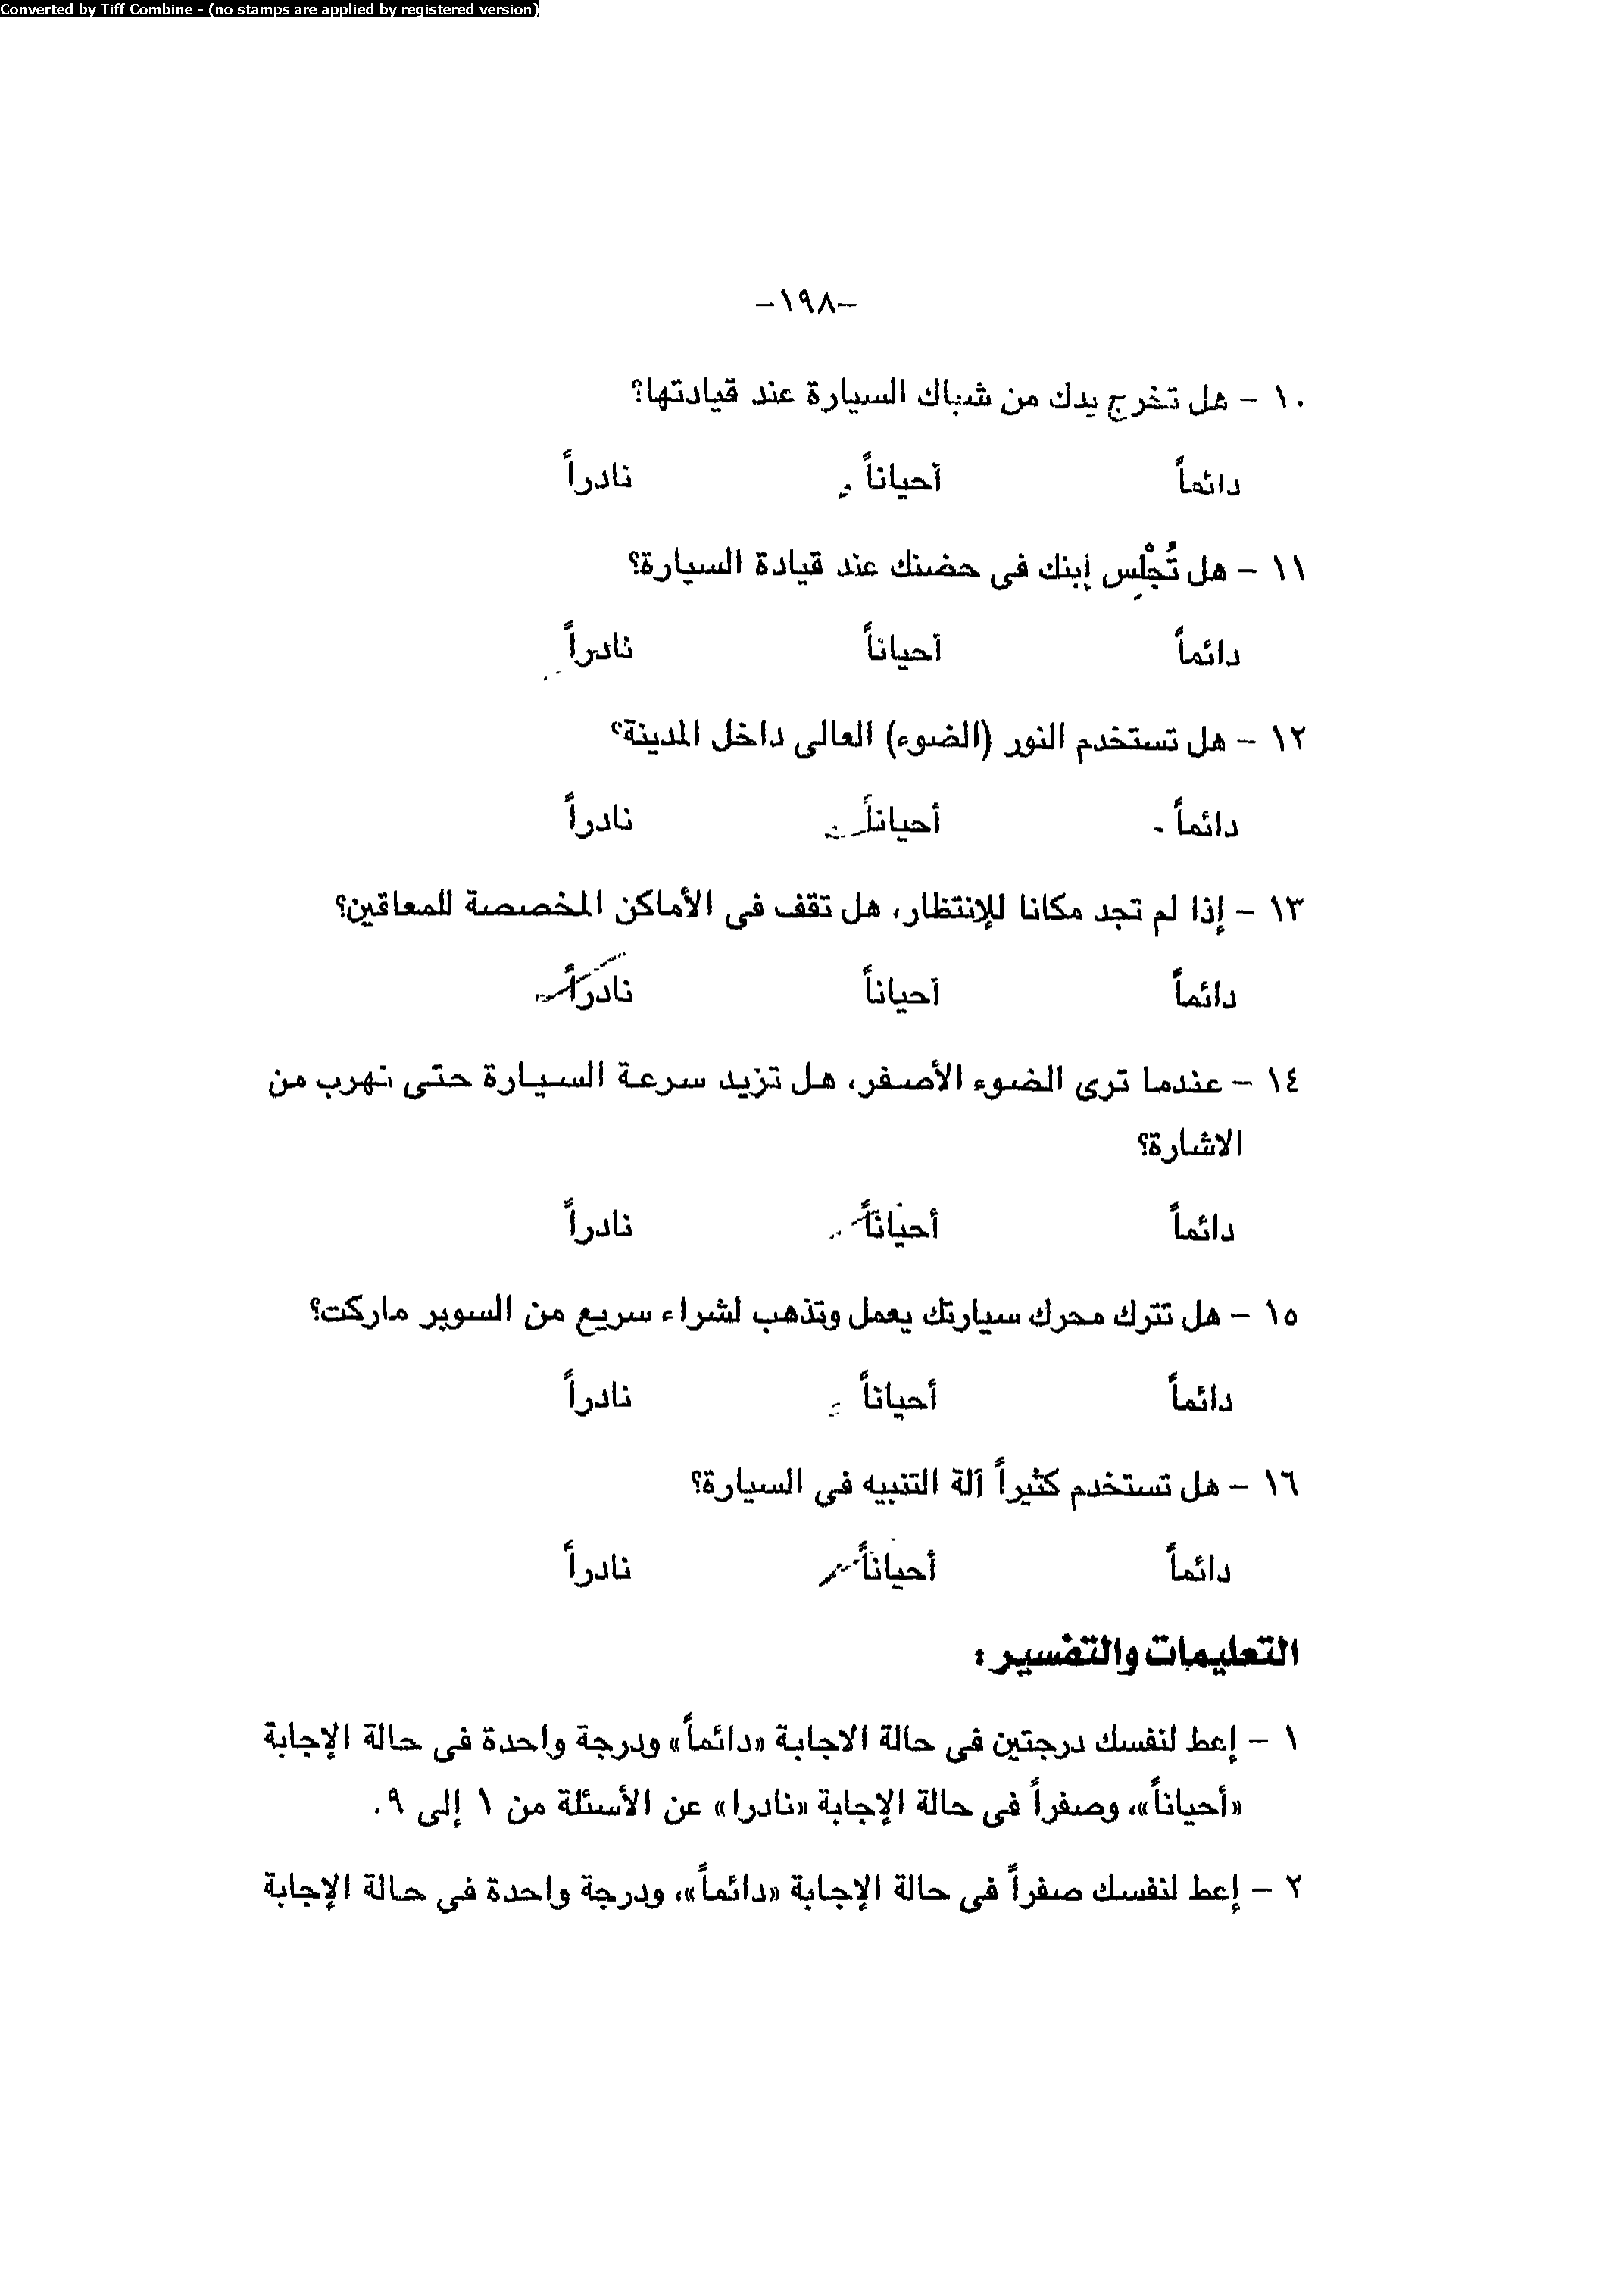 Converted by Tiff Combine - (no stamps are applied by registered version)
-١٩٨-
١٠ - هل تخرج يدك من شباك السيارة عند قيادتها؟
دائماً أحياناً نادراً
١١ - هل تُجْلِس إبنك فى حضنك عند قيادة السيارة؟
دائماً أحياناً نادراً
١٢ - هل تستخدم النور (الضوء) العالى داخل المدينة؟
دائماً أحياناً نادراً
١٣ - إذا لم تجد مكانا للإنتظار، هل تقف فى الأماكن المخصصة للمعاقين؟
دائماً أحياناً نادراً
١٤ - عندما ترى الضوء الأصفر، هل تزيد سرعة السيارة حتى تهرب من
الاشارة؟
دائماً أحياناً نادراً
١٥ - هل تترك محرك سيارتك يعمل وتذهب لشراء سريع من السوبر ماركت؟
دائماً أحياناً نادراً
١٦ - هل تستخدم كثيراً آلة التنبيه فى السيارة؟
دائماً أحياناً نادراً
التعليمات والتفسير :
١ - إعط لنفسك درجتين فى حالة الاجابة «دائماً» ودرجة واحدة فى حالة الإجابة
«أحياناً»، وصفراً فى حالة الإجابة «نادرا» عن الأسئلة من ١ إلى ٩.
٢ - إعط لنفسك صفراً فى حالة الإجابة «دائماً»، ودرجة واحدة فى حالة الإجابة